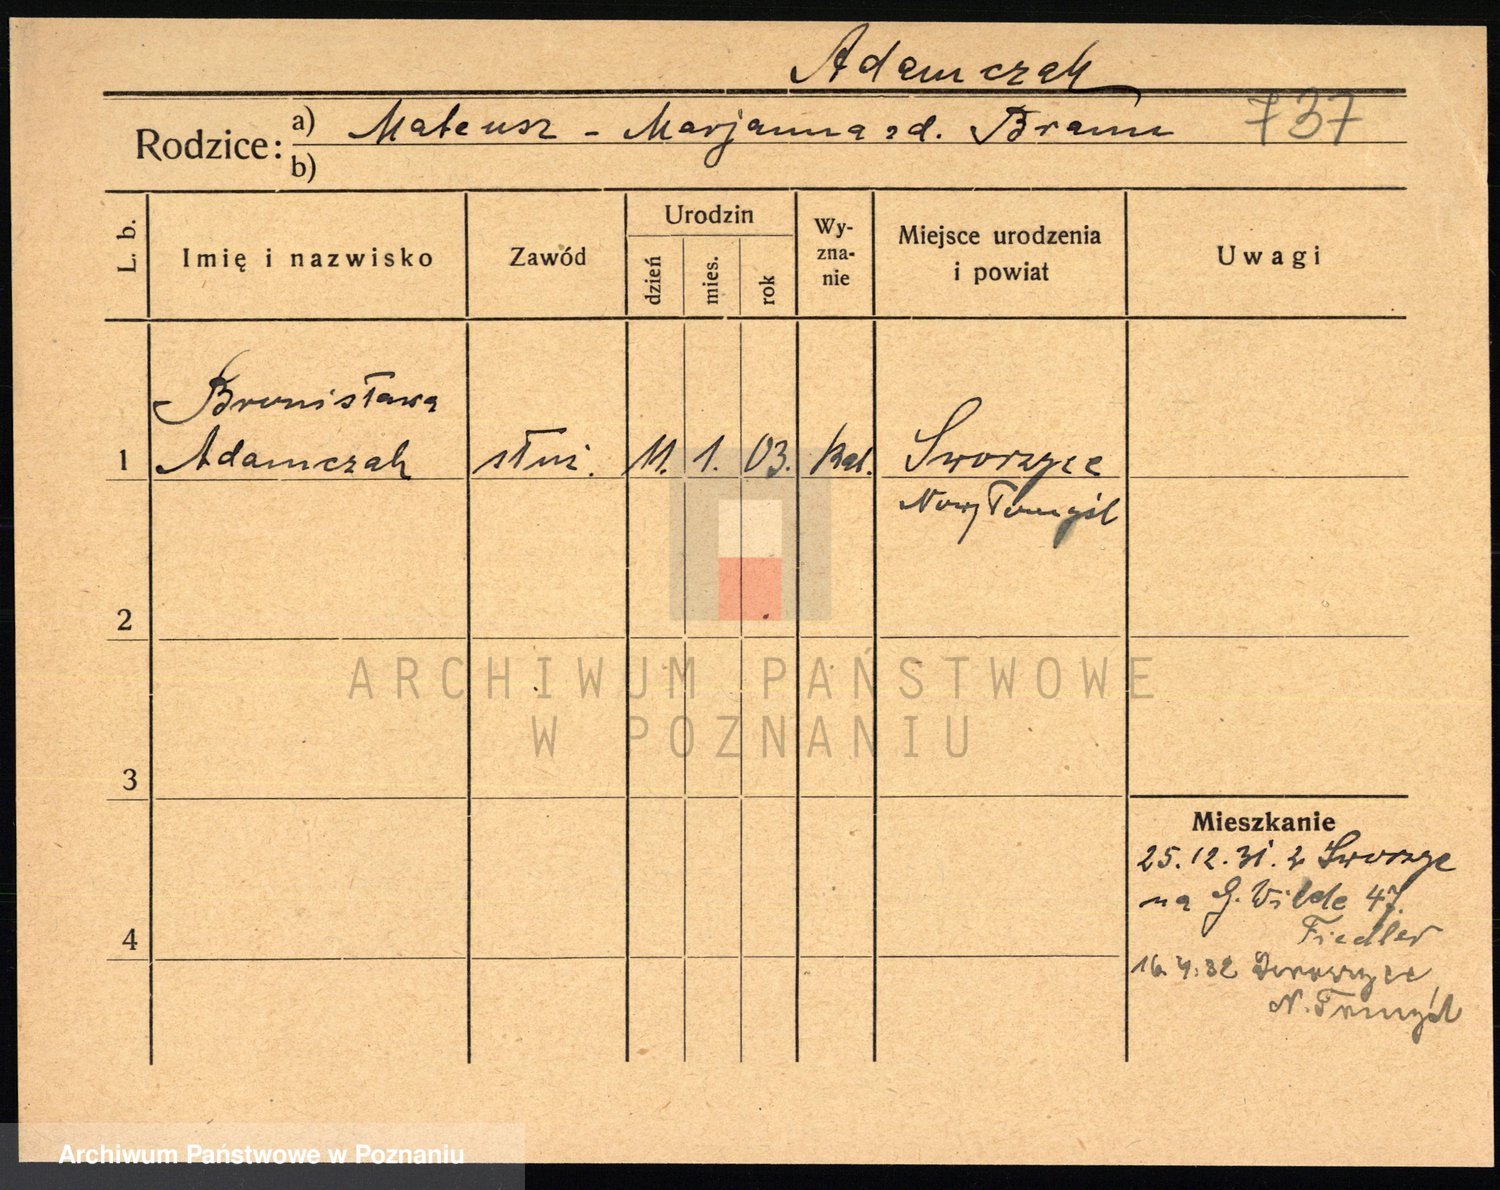 Adamczak
Rodzice: a) Mateusz - Marjanna zd. Bram 737
b)
L. b. Imię i nazwisko Zawód Urodzin dzień mies. rok Wy-zna-nie Miejsce urodzenia i powiat Uwagi
Bronisława
1 Adamczak służ. 11. 1. 03. kat. Sworzyce
Nowy Tomyśl
2
ARCHIWUM PAŃSTWOWE
W POZNANIU
3
Mieszkanie
25.12.31. z Sworzyc
na G. Wilde 47.
Fiedler
4
16.4.32 Sworzyce,
N. Tomyśl
Archiwum Państwowe w Poznaniu